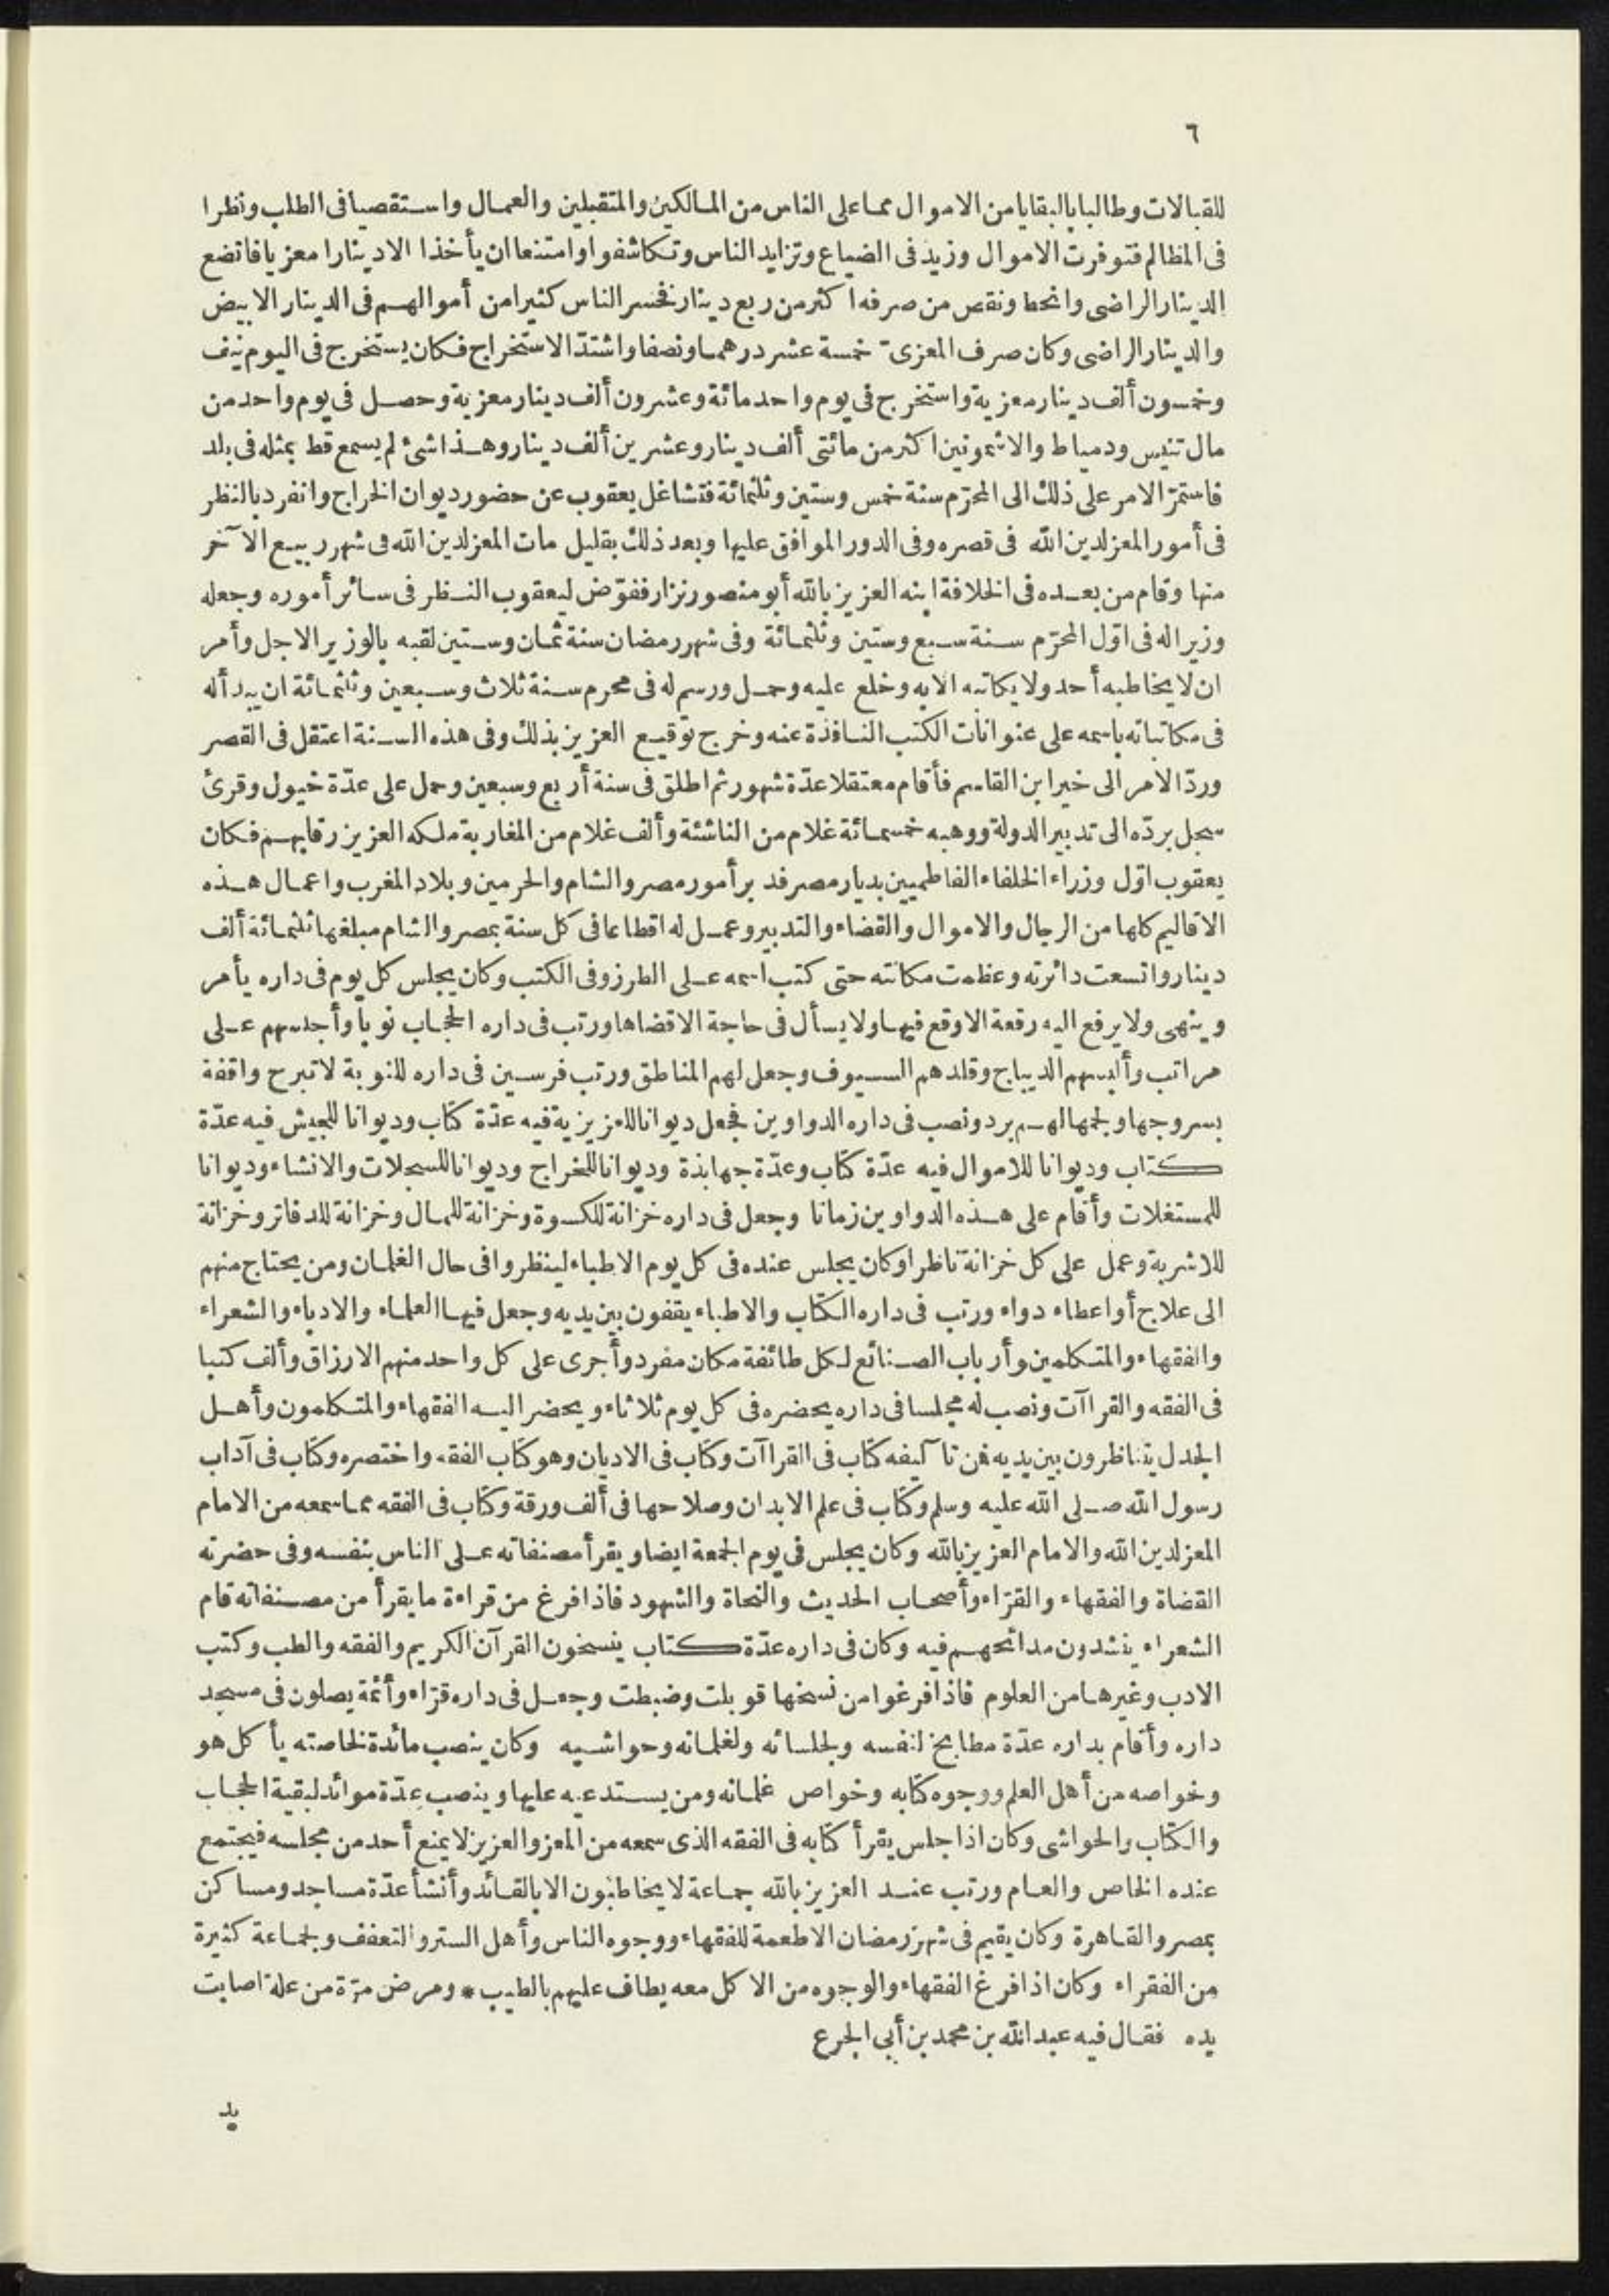 ٦
للقبالات وطالبا بالبقايا من الاموال مما على الناس من المالكين والمتقبلين والعمال واستقصيا فى الطلب ونظرا
فى المظالم فتوفرت الاموال وزيد فى الضياع وتزايد الناس وتكاشفوا وامتنعا ان يأخذا الا دينارا معزيا فاتضع
الدينار الراضى وانحط ونقص من صرفه اكثر من ربع دينار فخسر الناس كثيرا من أموالهم فى الدينار الابيض
والدينار الراضى وكان صرف المعزىّ خمسة عشر درهما ونصفا واشتدّ الاستخراج فكان يستخرج فى اليوم نيف
وخمسون ألف دينار معزية واستخرج فى يوم واحد مائة وعشرون ألف دينار معزية وحصل فى يوم واحد من
مال تنيس ودمياط والاشمونين اكثر من مائتى ألف دينار وعشرين ألف دينار وهذا شئ لم يسمع قط بمثله فى بلد
فاستمرّ الامر على ذلك الى المحرّم سنة خمس وستين وثلثمائة فتشاغل يعقوب عن حضور ديوان الخراج وانفرد بالنظر
فى أمور المعز لدين الله فى قصره وفى الدور الموافق عليها وبعد ذلك بقليل مات المعز لدين الله فى شهر ربيع الآخر
منها وقام من بعده فى الخلافة ابنه العزيز بالله أبو منصور نزار ففوّض ليعقوب النظر فى سائر أموره وجعله
وزيرا له فى اوّل المحرّم سنة سبع وستين وثلثمائة وفى شهر رمضان سنة ثمان وستين لقبه بالوزير الاجل وأمر
ان لا يخاطبه أحد ولا يكاتبه الا به وخلع عليه وحمل ورسم له فى محرم سنة ثلاث وسبعين وثلثمائة ان يبدأ له
فى مكاتباته باسمه على عنوانات الكتب النافذة عنه وخرج توقيع العزيز بذلك وفى هذه السنة اعتقل فى القصر
وردّ الامر الى خير ابن القاسم فأقام معتقلا عدّة شهور ثم اطلق فى سنة أربع وسبعين وحمل على عدّة خيول وقرئ
سجل بردّه الى تدبير الدولة ووهبه خمسمائة غلام من الناشئة وألف غلام من المغاربة ملكه العزيز رقابهم فكان
يعقوب اوّل وزراء الخلفاء الفاطميين بديار مصر فدبر أمور مصر والشام والحرمين وبلاد المغرب واعمال هذه
الاقاليم كلها من الرجال والاموال والقضاء والتدبير وعمل له اقطاعا فى كل سنة بمصر والشام مبلغها ثلثمائة ألف
دينار واتسعت دائرته وعظمت مكانته حتى كتب اسمه على الطرز وفى الكتب وكان يجلس كل يوم فى داره يأمر
وينهى ولا يرفع اليه رقعة الا وقع فيها ولا يسأل فى حاجة الا قضاها ورتب فى داره الحجاب نوبا وأجلسهم على
مراتب وألبسهم الديباج وقلدهم السيوف وجعل لهم المناطق ورتب فرسين فى داره للنوبة لا تبرح واقفة
بسروجها ولجمها لهم برد ونصب فى داره الدواوين فجعل ديوانا للعزيزية فيه عدّة كتّاب وديوانا للجيش فيه عدّة
كتاب وديوانا للاموال فيه عدّة كتّاب وعدّة جهابذة وديوانا للخراج وديوانا للسجلات والانشاء وديوانا
للمستغلات وأقام على هذه الدواوين زمانا وجعل فى داره خزانة للكسوة وخزانة للمال وخزانة للدفاتر وخزانة
للاشربة وعمل على كل خزانة ناظرا وكان يجلس عنده فى كل يوم الاطباء لينظروا فى حال الغلمان ومن يحتاج منهم
الى علاج أو اعطاء دواء ورتب فى داره الكتّاب والاطباء يقفون بين يديه وجعل فيها العلماء والادباء والشعراء
والفقهاء والمتكلمين وأرباب الصنائع لكل طائفة مكان مفرد وأجرى على كل واحد منهم الارزاق وألف كتبا
فى الفقه والقراآت ونصب له مجلسا فى داره يحضره فى كل يوم ثلاثاء ويحضر اليه الفقهاء والمتكلمون وأهل
الجدل يتناظرون بين يديه فمن تآليفه كتاب فى القراآت وكتاب فى الاديان وهو كتاب الفقه واختصره وكتاب فى آداب
رسول الله صلى الله عليه وسلم وكتاب فى علم الابدان وصلاحها فى ألف ورقة وكتاب فى الفقه مما سمعه من الامام
المعز لدين الله والامام العزيز بالله وكان يجلس فى يوم الجمعة ايضا ويقرأ مصنفاته على الناس بنفسه وفى حضرته
القضاة والفقهاء والقرّاء وأصحاب الحديث والنحاة والشهود فاذا فرغ من قراءة ما يقرأ من مصنفاته قام
الشعراء ينشدون مدائحهم فيه وكان فى داره عدّة كتاب ينسخون القرآن الكريم والفقه والطب وكتب
الادب وغيرها من العلوم فاذا فرغوا من نسخها قوبلت وضبطت وجعل فى داره قرّاء وأئمة يصلون فى مسجد
داره وأقام بداره عدّة مطابخ لنفسه ولجلسائه ولغلمانه وحواشيه وكان ينصب مائدة لخاصته يأكل هو
وخواصه من أهل العلم ووجوه كتّابه وخواص غلمانه ومن يستدعيه عليها وينصب عدّة موائد لبقية الحجاب
والكتّاب والحواشى وكان اذا جلس يقرأ كتابه فى الفقه الذى سمعه من المعز والعزيز لا يمنع أحد من مجلسه فيجتمع
عنده الخاص والعام ورتب عند العزيز بالله جماعة لا يخاطبون الا بالقائد وأنشأ عدّة مساجد ومساكن
بمصر والقاهرة وكان يقيم فى شهر رمضان الاطعمة للفقهاء ووجوه الناس وأهل الستر والتعفف ولجماعة كثيرة
من الفقراء وكان اذا فرغ الفقهاء والوجوه من الاكل معه يطاف عليهم بالطيب * ومرض مرّة من علة اصابت
يده فقال فيه عبد الله بن محمد بن أبى الجرع
يد